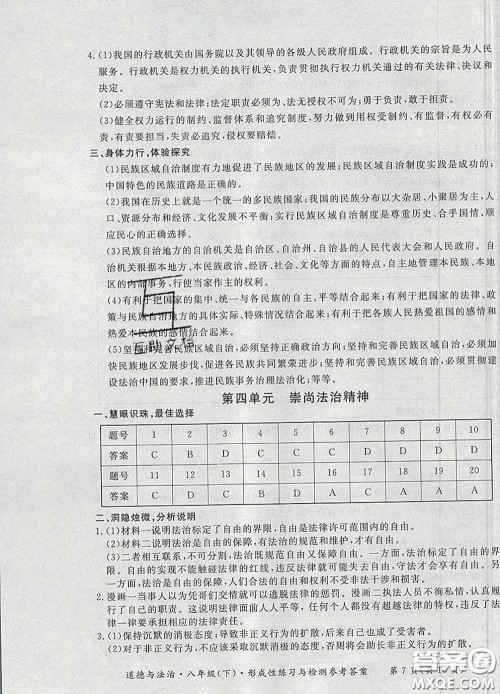 4.(1)我国的行政机关由国务院以及其领导的各级人民政府组成。行政机关的宗旨是为人民
服务。行政机关是权力机关的执行机关，负责贯彻执行权力机关通过的有关法律、决议和
决定。
(2)必须遵守宪法和法律；法定职责必须为、法无授权不可为；勇于负责，敢于担责。
(3)健全权力运行的制约、监督体系和追究制度，努力做到用权受制约、有监督，有权必有
责，有责要担当，失责必追究，侵权要赔偿。
三、身体力行，体验探究
(1)民族区域自治制度有力地促进了民族地区的发展；民族区域自治制度实践是成功的；
中国特色的民族道路是正确的。
(2)我国在历史上就是一个统一的多民族国家；我国的民族分布以大杂居、小聚居为主，人
口、资源分布和经济、文化发展不平衡；实行民族区域自治制度，符合历史发展、合乎国情、
顺应民心的正确的选择。
(3)民族自治地方的自治机关是自治区、自治州、自治县的人民代表大会和人民政府。自
治机关根据本地、本民族政治、经济、社会、文化等方面的特点，自主地管理本民族本地区
的内部事务，行使当家作主的权利。
(4)有利于把国家的集中、统一与各民族的自主、平等结合起来；有利于把国家的法律、政
策与民族自治地方的具体实际、特殊情况结合起来；有利于把各族人民热爱祖国的感情和
热爱本民族的感情结合起来。
(5)坚持和完善民族区域自治，必须坚持正确政治方向；坚持和完善民族区域自治，必须依
法治国；坚持和完善民族区域自治，促进各民族共同繁荣进步；坚持和完善民族区域自治，必须加快
建设法治中国的要求，推进民族事务治理法治化；等等。
第四单元 崇尚法治精神
一、慧眼识珠，最佳选择
题号 1 2 3 4 5 6 7 8 9 10
答案 C B D C C D B C C D
题号 11 12 13 14 15 16 17 18 19 20
答案 D C D B A C D A A A
二、洞隐烛微，分析说明
1.(1)材料一说明法治标定了自由的界限，自由是法律许可范围内的自由。
(2)材料二说明法治是自由的保障，有法治才有自由。
(3)二者相互联系，不可分割，法治既规范自由又保障自由。一方面，法治标定了自由的界
限。自由的实现不能触碰法律的红线，违反法律可能失去自由，守法才会享有自由。另
一方面，法治是自由的保障，人们合法的自由和权利不受非法干涉和损害。
2.漫画一当事人以为凭哥们交情就可以逃脱法律的惩罚。漫画二执法人员不徇私情，认真履行
了职责。法律面前人人平等，任何组织和个人都没有超越法律的特权，任何人违法都要
承担相应的法律责任。
3.(1)保持沉默的消极态度，导致自由权利受到侵犯，我们不能保持沉默的消极态度。
道德与法治·八年级（下）·形成性练习与检测参考答案
互助文档
答案圈
MXQE.COM